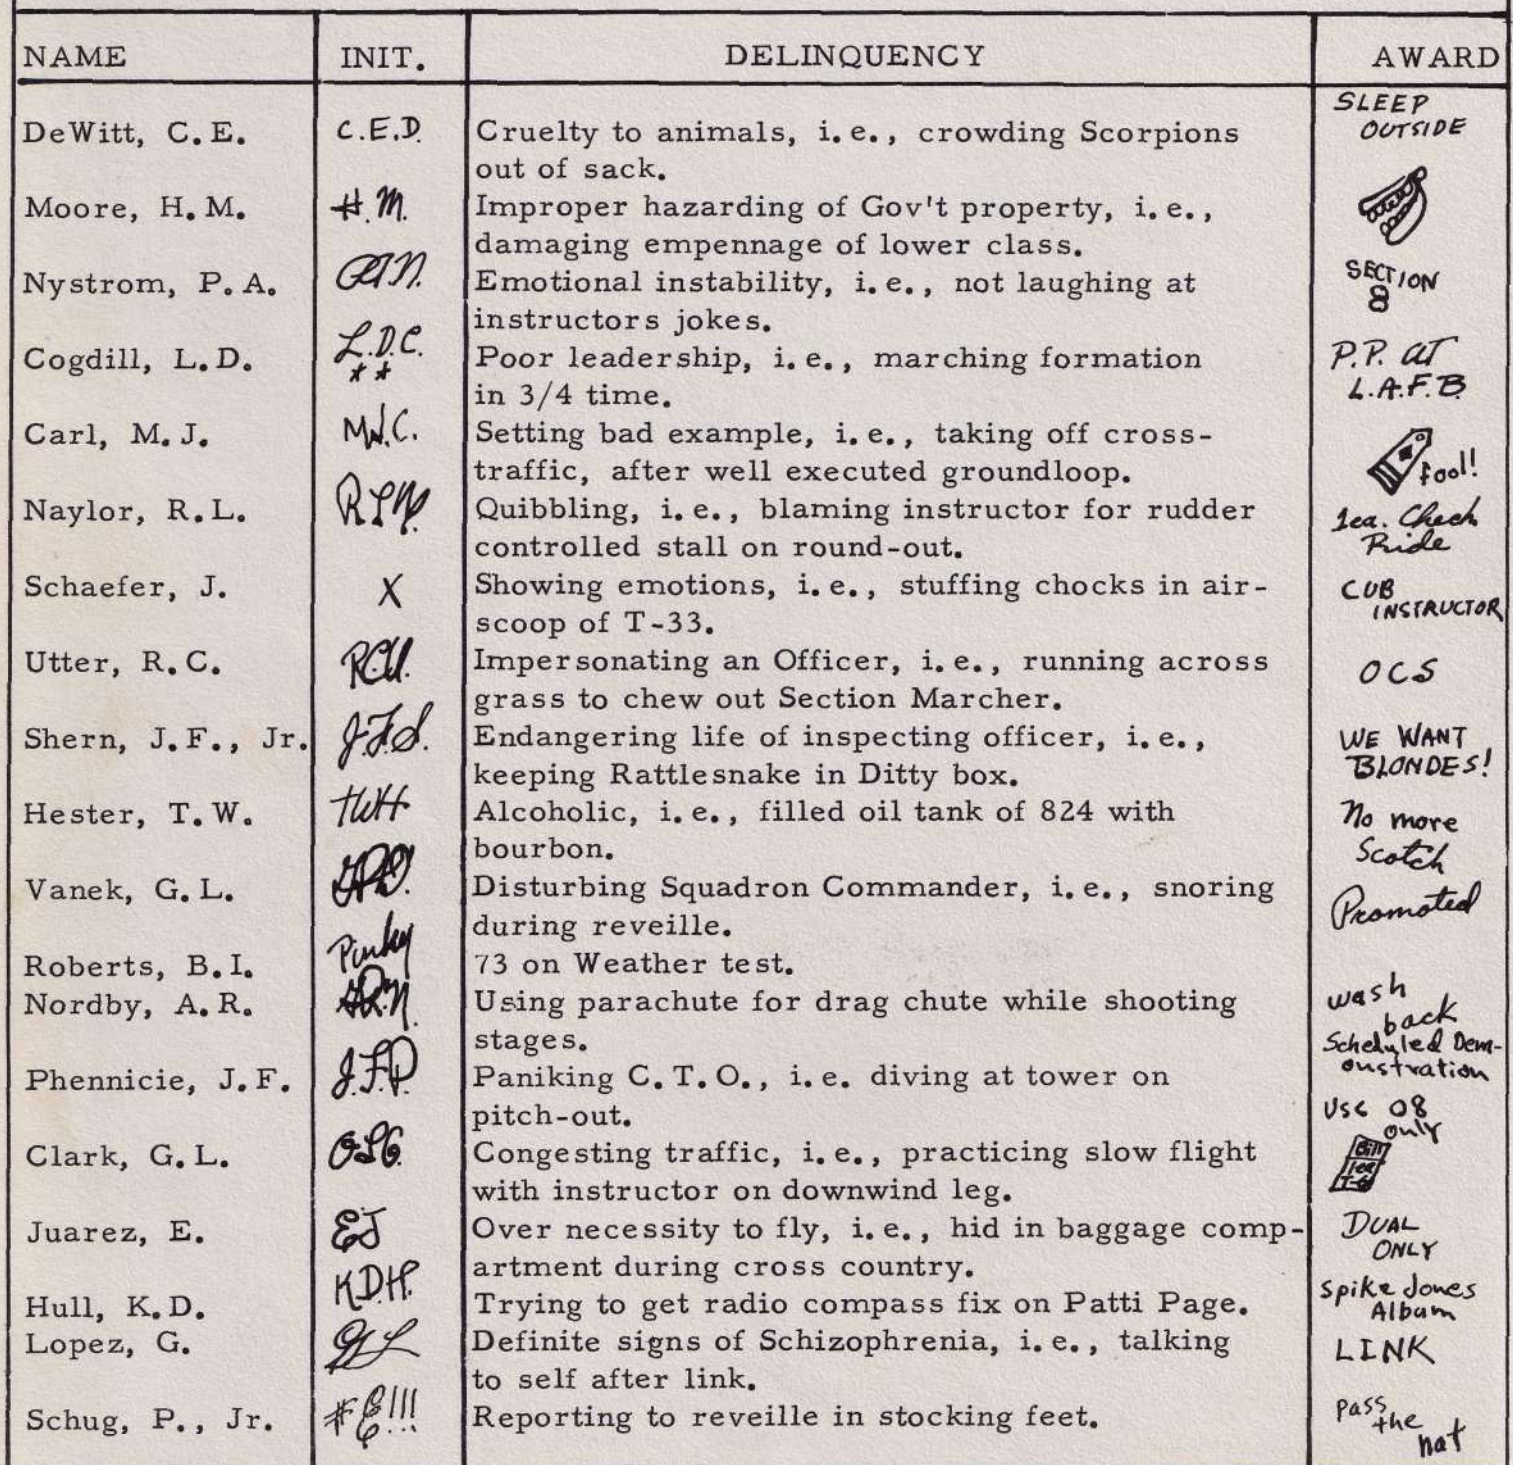 NAME INIT. DELINQUENCY AWARD
SLEEP
DeWitt, C.E. C.E.D. Cruelty to animals, i.e., crowding Scorpions OUTSIDE
out of sack.
Moore, H.M. H.M. Improper hazarding of Gov't property, i.e.,
damaging empennage of lower class.
Nystrom, P.A. Emotional instability, i.e., not laughing at SECTION
instructors jokes. 8
Cogdill, L.D. L.D.C. Poor leadership, i.e., marching formation P.P. AT
** in 3/4 time. L.A.F.B
Carl, M.J. M.J.C. Setting bad example, i.e., taking off cross-
traffic, after well executed groundloop. fool!
Naylor, R.L. RLN. Quibbling, i.e., blaming instructor for rudder 1ea. Check
controlled stall on round-out. Ride
Schaefer, J. X Showing emotions, i.e., stuffing chocks in air- CUB
scoop of T-33. INSTRUCTOR
Utter, R.C. RCU. Impersonating an Officer, i.e., running across OCS
grass to chew out Section Marcher.
Shern, J.F., Jr. J.F.S. Endangering life of inspecting officer, i.e., WE WANT
keeping Rattlesnake in Ditty box. BLONDES!
Hester, T.W. TWH Alcoholic, i.e., filled oil tank of 824 with No more
bourbon. Scotch
Vanek, G.L. Disturbing Squadron Commander, i.e., snoring Promoted
during reveille.
Roberts, B.I. Pinky 73 on Weather test.
Nordby, A.R. A.R.N. Using parachute for drag chute while shooting wash
stages. back
Scheduled Dem-
Phennicie, J.F. J.F.P. Paniking C.T.O., i.e. diving at tower on onstration
pitch-out. Use 08
only
Clark, G.L. GLC. Congesting traffic, i.e., practicing slow flight Bill
with instructor on downwind leg. 1ea T-6
Juarez, E. EJ Over necessity to fly, i.e., hid in baggage comp- DUAL
artment during cross country. ONLY
Hull, K.D. K.D.H. Trying to get radio compass fix on Patti Page. Spike Jones
Album
Lopez, G. GL Definite signs of Schizophrenia, i.e., talking LINK
to self after link.
Schug, P., Jr. #E!!! Reporting to reveille in stocking feet. pass
the
hat